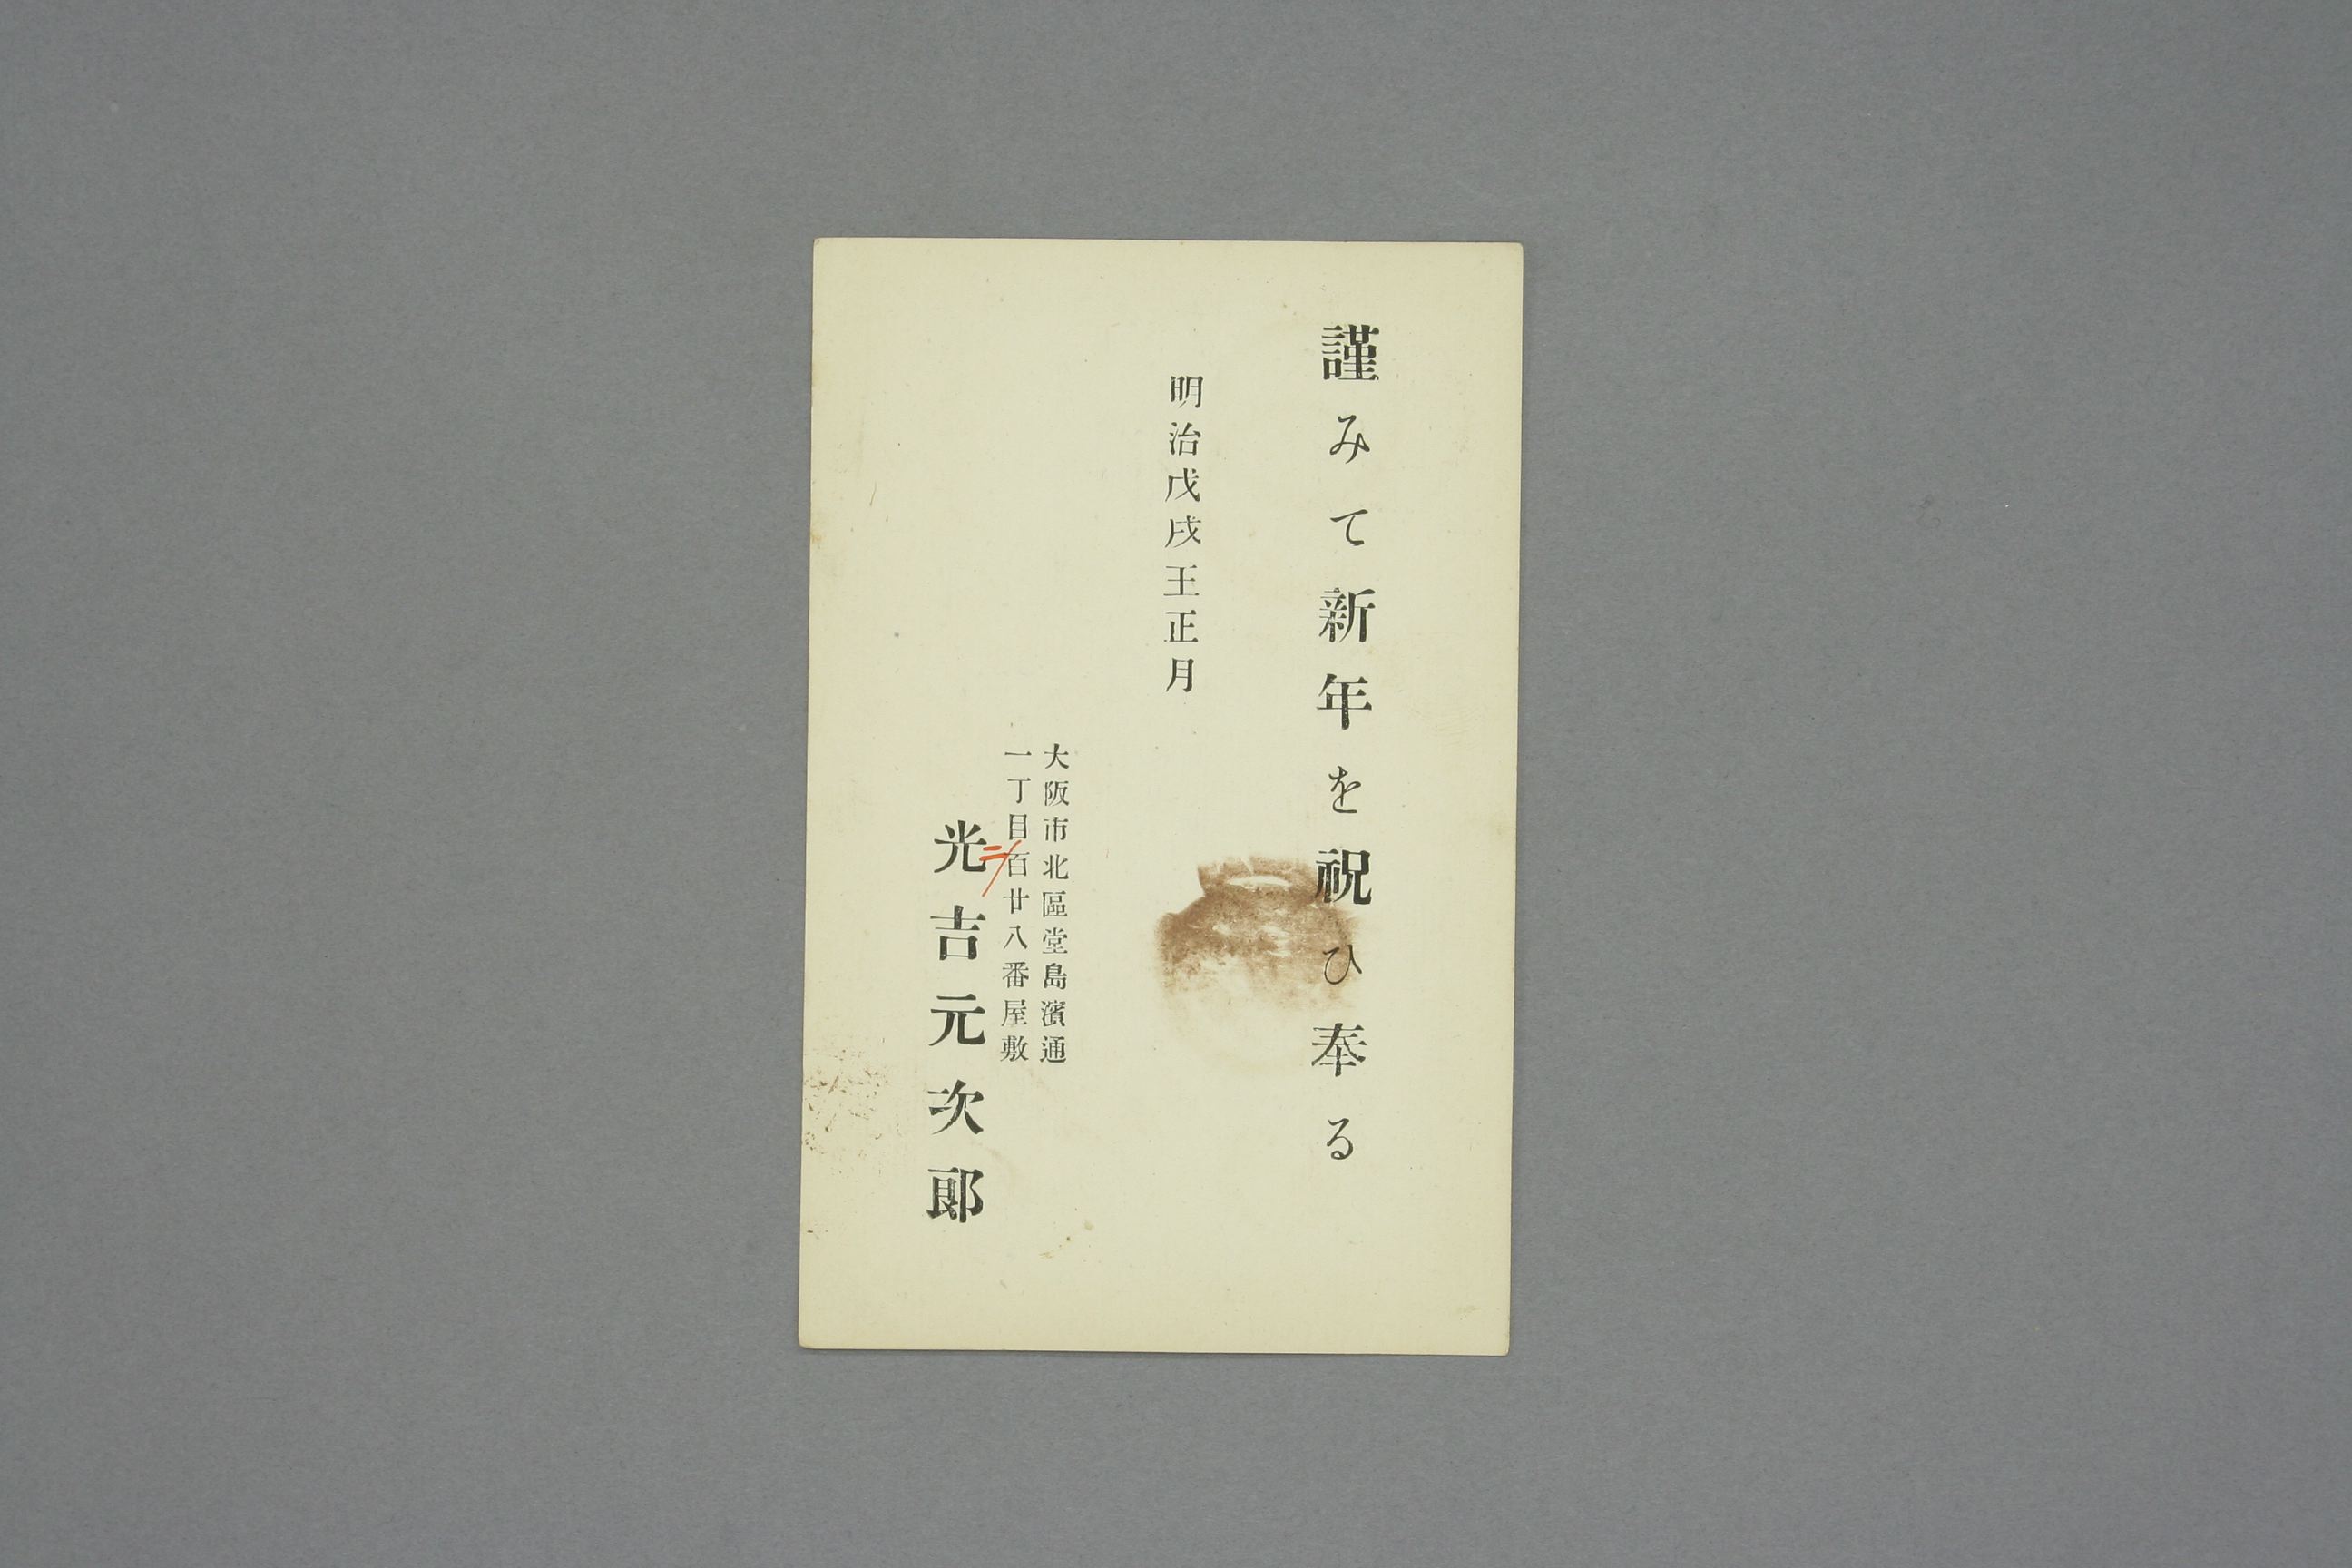 謹みて新年を祝ひ奉る
明治戊戌王正月
大阪市北區堂島濱通
一丁目百廿八番屋敷
光吉元次郎